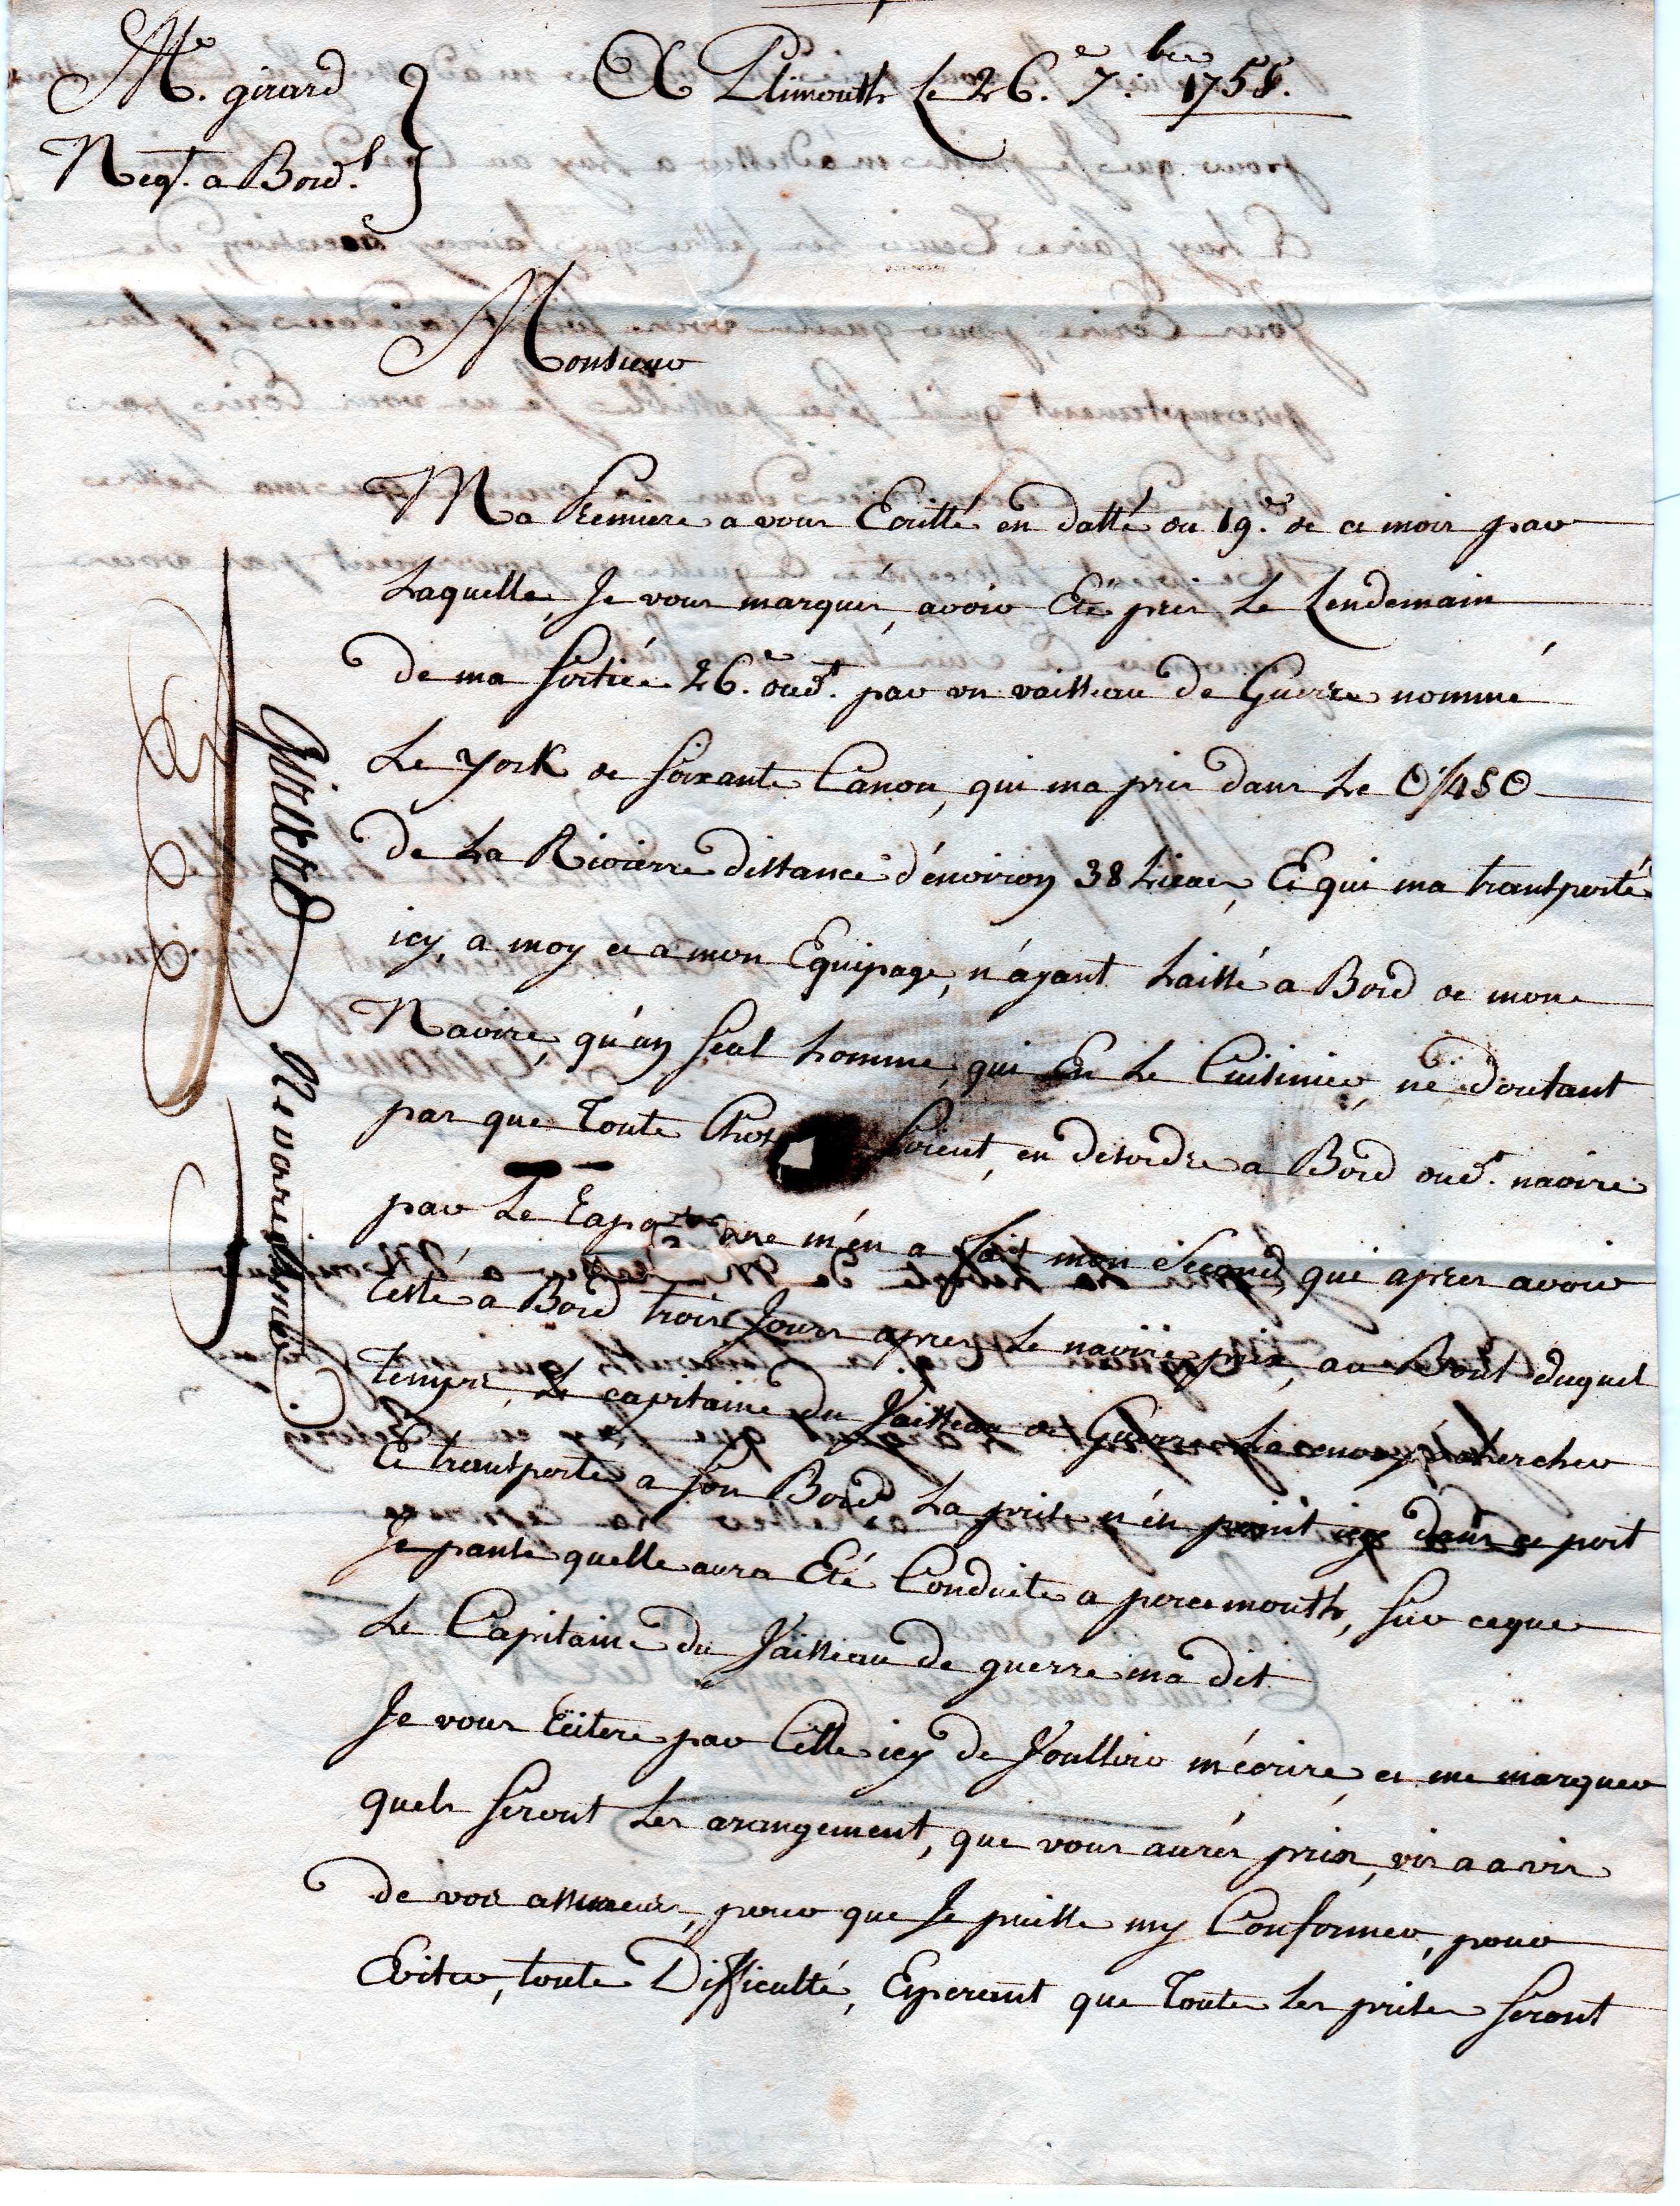 Mr. girard
Negt. a Bordx
A Plimouth Le 26.e 7.bre 1758.
Monsieur
Ma Premiere a vous Ecritte en datte du 19.e de ce mois par
Laquelle, Je vous marques, avoir Eté pris Le Lendemain
de ma Sortiée 26.e dud.t par un vaisseau de Guerre nommé
Le york de soixante Canon, qui ma pris dans Le
de La Rivierre distance d'énviron 38 Lieues, Et qui ma transporté
icy, a moy et a mon Equipage, n'áyant Laissé a Bord de mon
Navire, qu'un seul homme, qui En Le Cuisinier, ne doutant
pas que Toute Chose Soient, en desordre a Bord dud.t navire
par Le men a fait mon Second, qui apres avoir
resté a Bord trois Jours apres Le navire pris, au Bout duquel
Temps, Le capitaine du Vaisseau de Guerre La envoyé chercher
Et transporté a son Bord La prise n'én point icy dans ce port
Je panse quelle aura Eté Conduite a porcemouth, sur ceque
Le Capitaine du Vaisseau de guerre ma dit
Je vous reitere par Cette icy de Voulloir m'écrire, et me marquer
quels seront Les arangement, que vous aurés pris, vis a a vis
de vos assureurs, pour que Je puisse my Conformer, pour
Eviter, toute Difficulté, Esperant que Toutes Les prises seront
girard Ne varietur